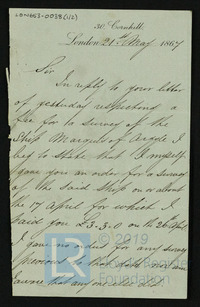 LON453-0038(L)
30 Cornhill
London 21st May 1867
Sir
In reply to your letter
of yesterday respecting a
fee for a survey of the
Ship Marquis of Argyle I
beg to state that I myself
gave you an order for a survey
of the said Ship on or about
the 17 April for which I
paid you £3.3.0 on the 26 April
I gave no order for any survey
previous to that
aware that any one
© 2019
Lloyd's Register
Foundation